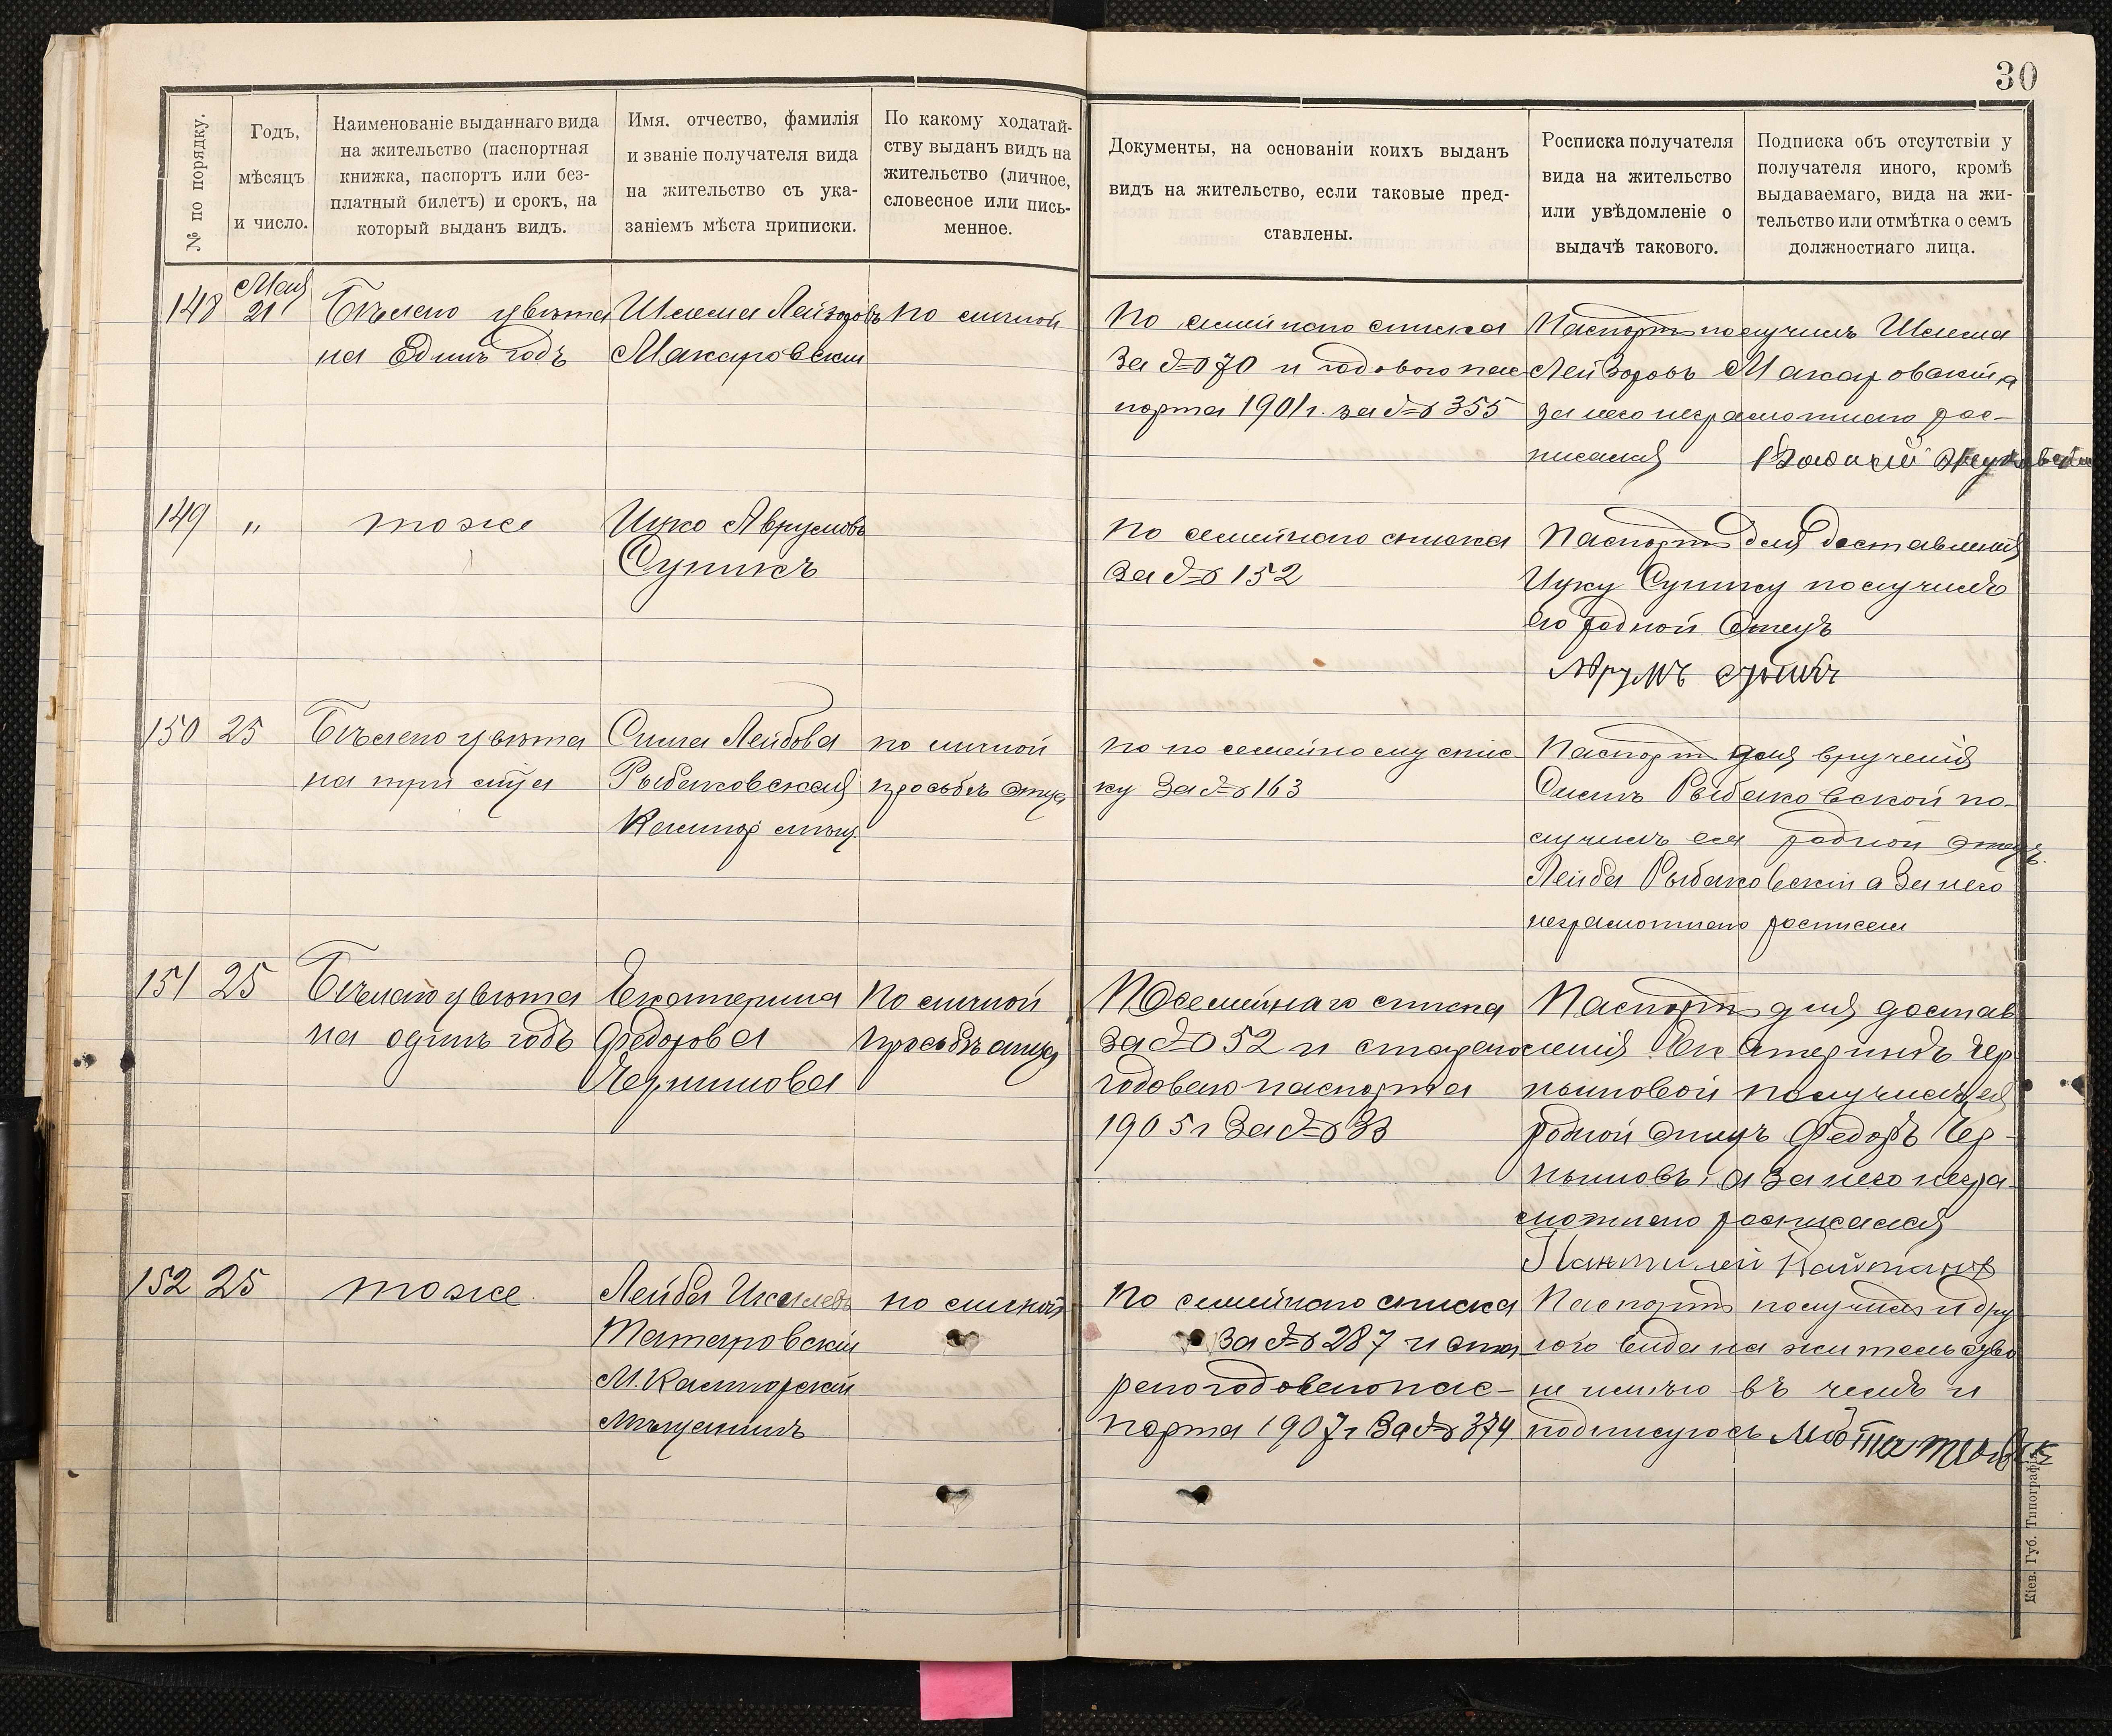 30
№ по порядку.
Годъ,
мѣсяцъ
и число.
Наименованіе выданнаго вида
на жительство (паспортная
книжка, паспортъ или без-
платный билетъ) и срокъ, на
который выданъ видъ.
Имя. отчество, фамилія
и званіе получателя вида
на жительство съ ука-
заніемъ мѣста приписки.
По какому ходатай-
ству выданъ видъ на
жительство (личное,
словесное или пись-
менное.
Документы, на основаніи коихъ выданъ
видъ на жительство, если таковые пред-
ставлены.
Росписка получателя
вида на жительство
или увѣдомленіе о
выдачѣ такового.
Подписка объ отсутствіи у
получателя иного, кромѣ
выдаваемаго, вида на жи-
тельство или отмѣтка о семъ
должностнаго лица.
148
Мая
21
Бѣлаго цвѣта
на Единъ годъ
Шлема Лейзоровъ
Макаровскій
по личной
По семейнаго списка
За № 70 и годового пас
порта 1901 г. за № 355
Паспортъ получилъ Шлема
Лейзоровъ Макаровскій а
за него неграмотнаго рос-
писался
149
"
тоже
Ицко Аврумовъ
Супикъ
по семейнаго списка
За № 152
Паспортъ для доставленія
Ицку Супику получилъ
его родной Отецъ
150
25
Бѣлаго цвѣта
на три мѣ-ца
Сима Лейбова
Рыбаковская
по личной
просьбѣ отца
по по семейному спис
ку За № 163
Паспортъ для врученія
Симѣ Рыбаковской по-
лучилъ ея родной отецъ
Лейба Рыбаковскій а За него
неграмотнаго росписал
151
25
Бѣлаго цвѣта
на одинъ годъ
Екатерина
Федорова
По личной
просьбѣ отца
По семейнаго списка
За № 52 и стараго
годоваго паспорта
1905 г За № 33
Паспортъ для достав
ленія Екатеринѣ Чер
получилъ ея
родной отецъ Федоръ Чер-
а За него негра
мотнаго росписался
152
25
тоже
Лейба
Татаровскій
М. Кагнорскій
Мѣщанинъ
по личной
По семейнаго списка
За № 287 и ста
раго годоваго пас-
порта 1907 г За № 374
Паспортъ получилъ и дру
гого вида на жительство
не имѣю въ чемъ и
подписуюсь
Кіев. Губ. Типографія.